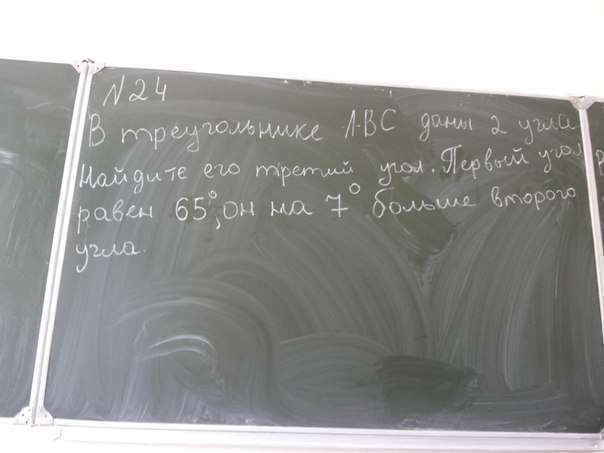 N24
В треугольнике АВС даны 2 угла
Найдите его третий угол. Первый угол
равен 65°, он на 7° больше второго
угла.